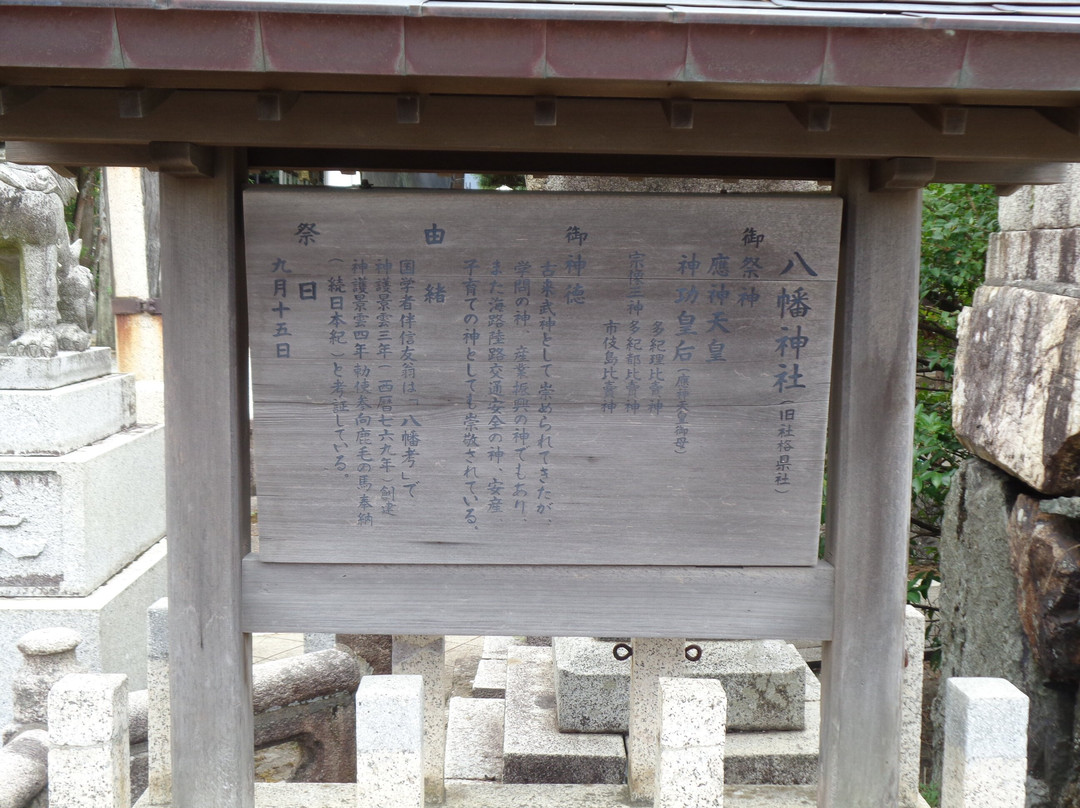 八幡神社(旧社格県社)
御祭神
應神天皇
神功皇后(應神天皇御母)
宗像三神 多紀理比賣神
多紀都比賣神
市伎島比賣神
御神徳
古来武神として崇められてきたが、
学問の神、産業振興の神でもあり、
また海路陸路交通安全の神、安産、
子育ての神としても崇敬されている。
由緒
国学者伴信友翁は「八幡考」で
神護景雲三年(西暦七六九年)創建
神護景雲四年勅使参向鹿毛の馬奉納
(続日本紀)と考証している。
祭日
九月十五日